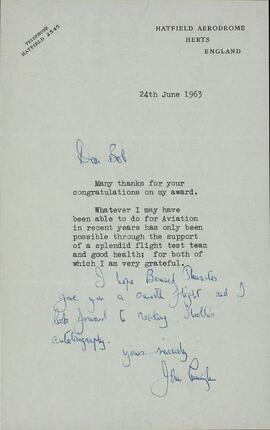 TELEPHONE
HATFIELD 2345
HATFIELD AERODROME
HERTS
ENGLAND
24th June 1963
Dear Bob
Many thanks for your
congratulations on my award.
Whatever I may have
been able to do for Aviation
in recent years has only been
possible through the support
of a splendid flight test team
and good health; for both of
which I am very grateful.
I hope Bernard
gave you a smooth flight and I
look forward to reading
autobiography.
Yours sincerely
John Cunningham